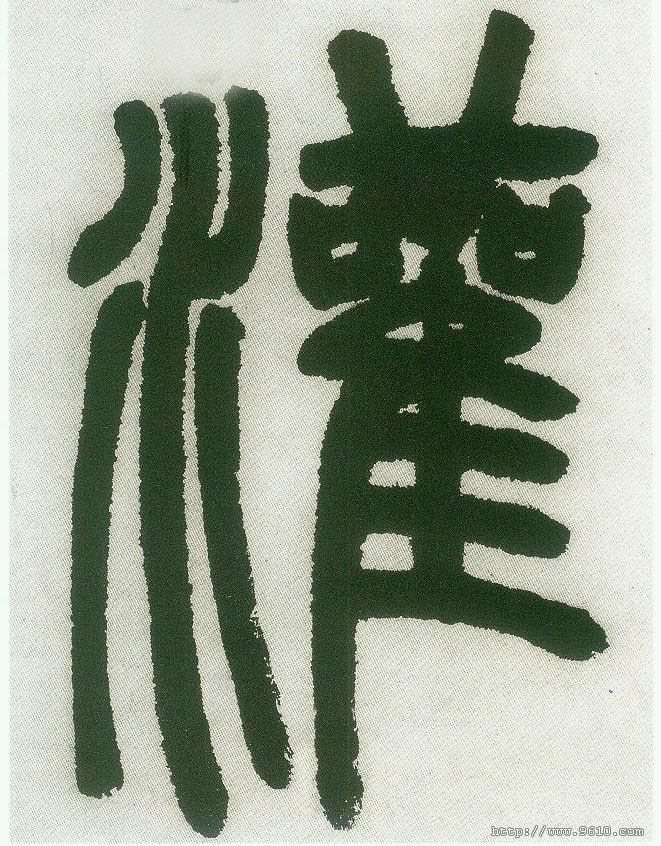 灌
http://www.9610.com